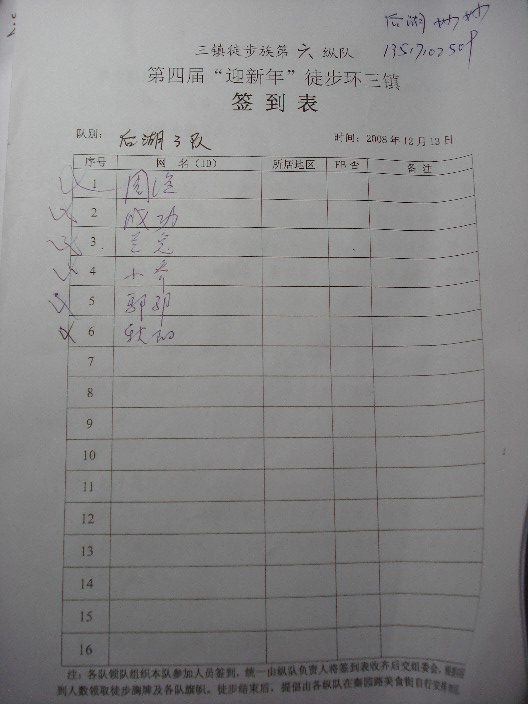 后湖 妙妙
三镇徒步族第 六 纵队
第四届“迎新年”徒步环三镇
签到表
队别: 后湖3队 时间: 2008年12月13日
序号 网 名(ID) 所居地区 FB否 备注
1
2 成功
3
4 小乔
5 郭郭
6 秋
7
8
9
10
11
12
13
14
15
16
注: 各队领队组织本队参加人员签到, 统一由纵队负责人将签到表收齐后交组委会,
到人数领取徒步胸牌及各队旗帜。徒步结束后, 提倡由各纵队在秦园路美食街自行安排